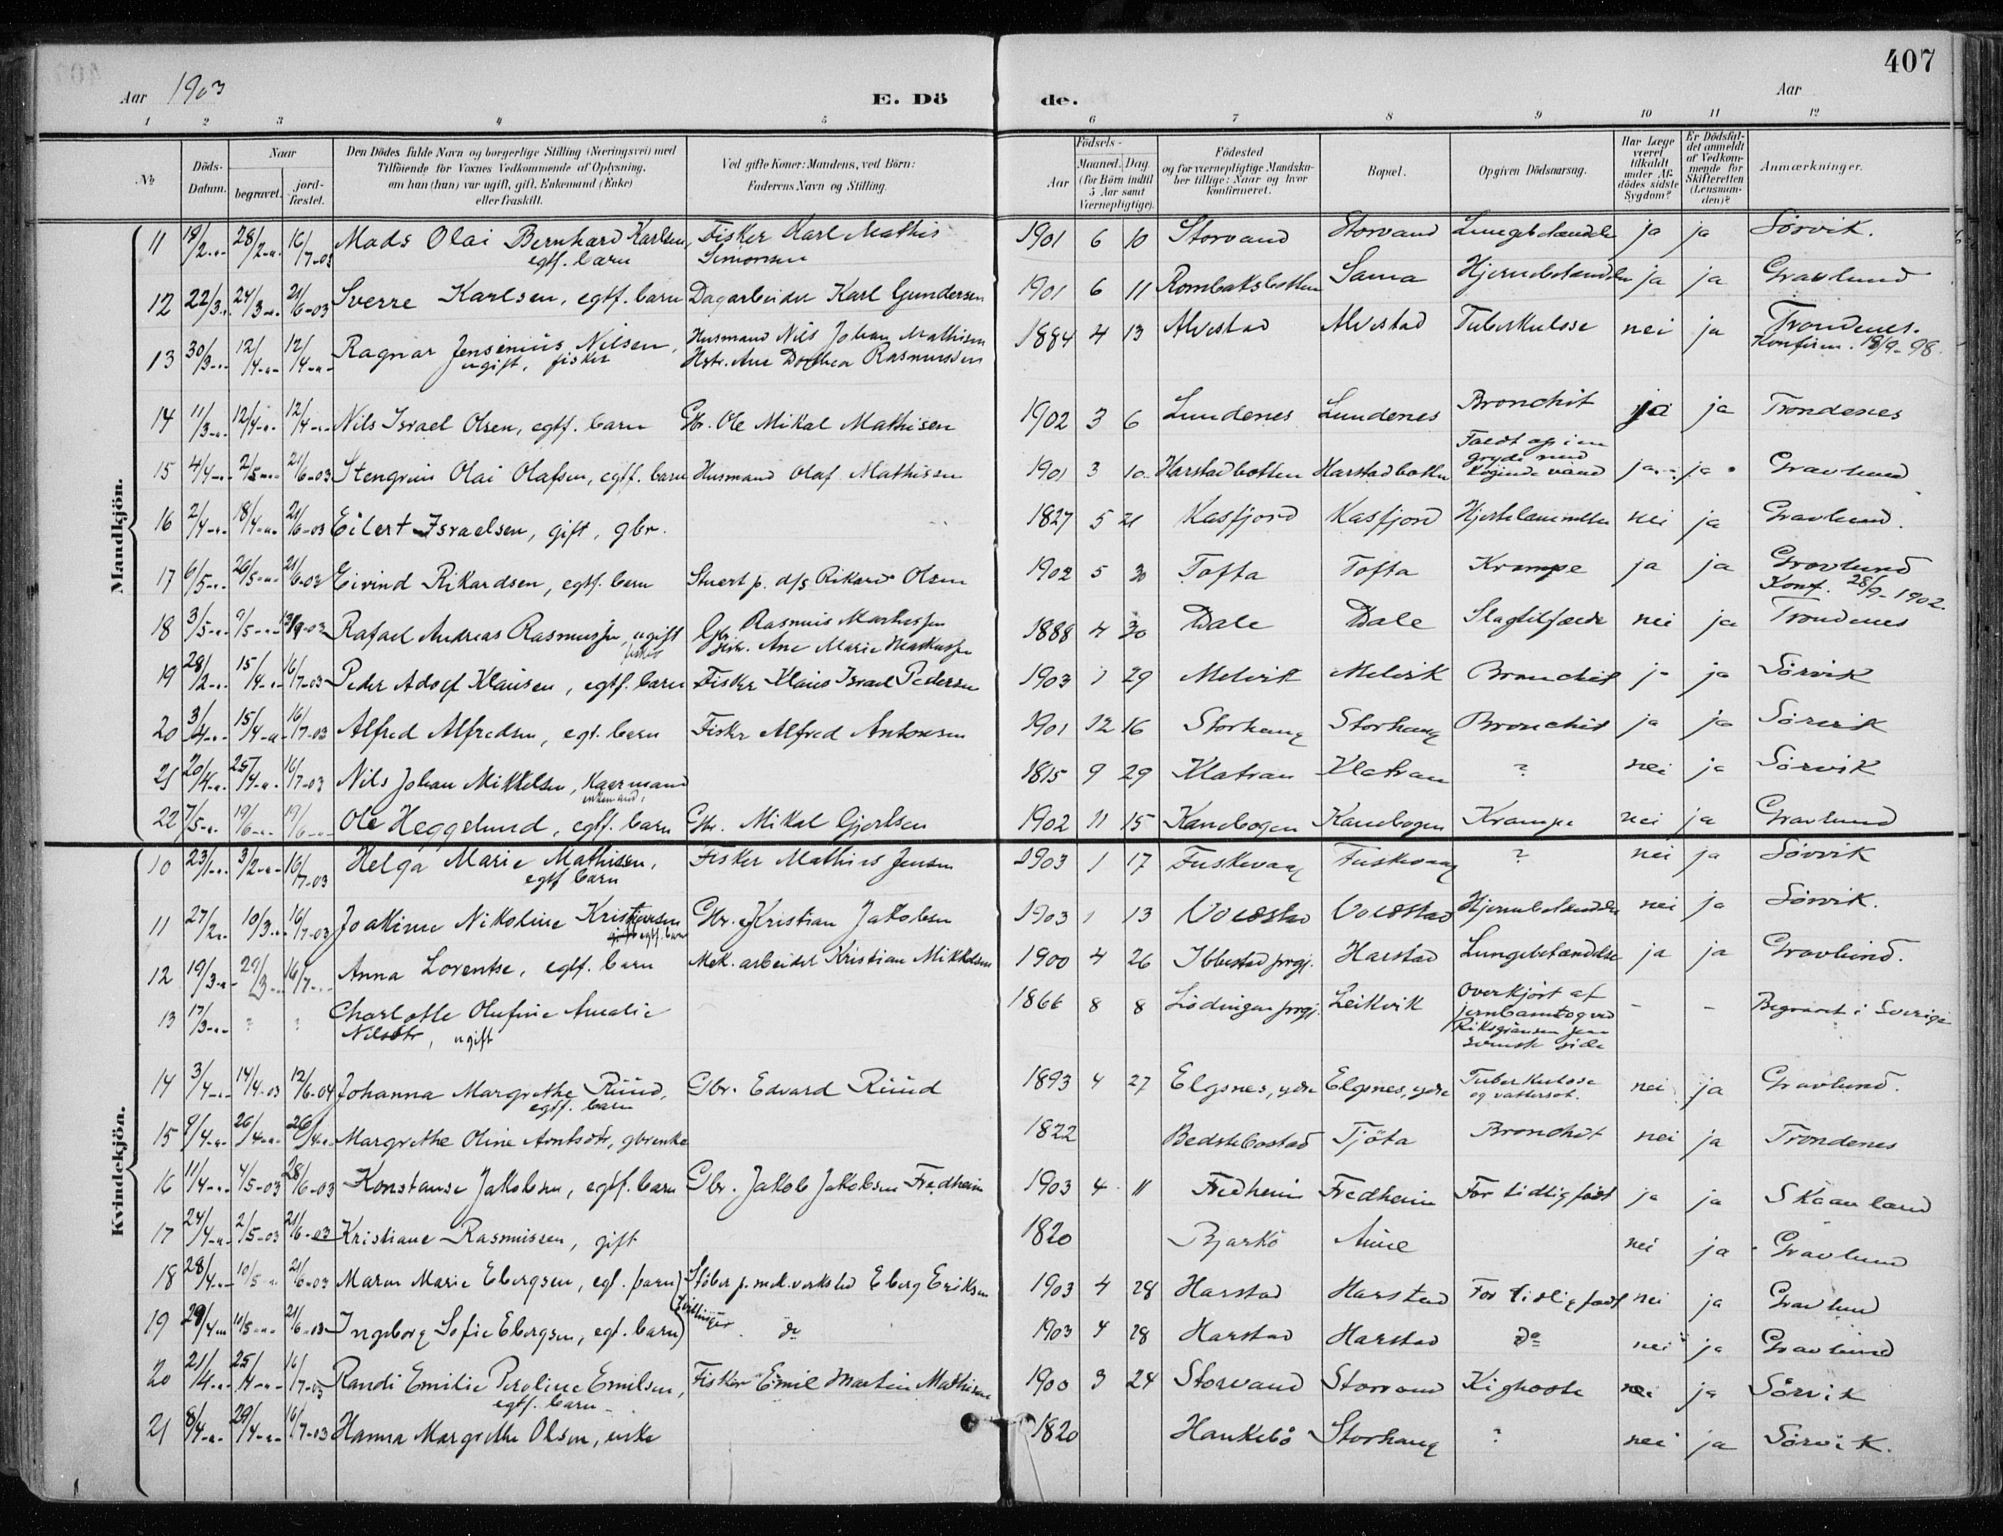 407
Aar 1903
E. Döde.
Aar
1 2 3 4 5 6 7 8 9 10 11 12
No
Döds-Datum.
Naar
begravet.
jord-fæstet.
Den Dödes fulde Navn og borgerlige Stilling (Næringsvei) med
Tilföiende for Voxnes Vedkommende af Oplysning,
om han (hun) var ugift, gift, Enkemand (Enke)
eller fraskilt.
Ved gifte Koner: Mandens, ved Börn:
Faderens Navn og Stilling.
Födsels-
Aar
Maaned. Dag.
(for Börn indtil
5 Aar samt
Værnepligtige).
Födested
og for værnepligtige Mandska-
ber tillige: Naar og hvor
konfirmeret.
Bopæl.
Opgiven Dödsaarsag.
Har Læge
været
tilkaldt
under Af-
dödes sidste
Sygdom?
Er Dödsfal-
det anmeldt
af Vedkom-
mende for
Skifteretten
(Lensman-
den)?
Anmærkninger.
Mandkjön.
11 19/2 28/2 16/7-03 Mads Olai Bernhard Karlsen, egtf. barn Fisker Karl Mathis Simonsen 1901 6 10 Storvand Storvand Lungebetændelse ja ja Sörvik.
12 22/3 24/3 21/6-03 Sverre Karlsen, egtf. barn Dagarbeider Karl Gundersen 1901 6 11 Rombaksbotten Sama Hjernebetændelse ja ja Gravlund
13 30/3 12/4 12/4 Ragnar Jensenius Nilsen, ugift, fisker Husmand Nils Johan Mathisen Hstr. Ane Dorthea Rasmusden 1884 4 13 Alvestad Alvestad Tuberkulose nei ja Trondenes. Konfirm. 18/9-98.
14 11/3 12/4 12/4 Nils Israel Olsen, egtf. barn Gbr. Ole Mikal Mathisen 1902 3 6 Lundenes Lundenes Bronchit ja ja Trondenes
15 4/4 2/5 21/6-03 Stengrim Olai Olafsen, egtf. barn Husmand Olaf Mathisen 1901 3 10 Harstadbotten Harstadbotten Faldt op i en gryde med kogende vand ja ja Gravlund
16 2/4 18/4 21/6-03 Eilert Israelsen, gift, gbr. 1827 5 21 Kasfjord Kasfjord Hjertelammelse nei ja Gravlund.
17 6/5 26/5 21/6-03 Eivind Rikardsen, egtf. barn Stuert p. d/s Rikard Olsen 1902 5 30 Tofta Tofta Krampe ja ja Gravlund
18 3/5 9/5 13/9-03 Rafael Andreas Rasmussen, ugift fisker Gbr. Rasmus Markussen Hstr. Ane Marie Markussen 1888 4 30 Dale Dale Slagtilfælde nei ja Konf. 28/9-1902. Trondenes
19 28/2 15/4 16/7-03 Peder Adolf Klausen, egtf. barn Fisker Klaus Israel Pedersen 1903 1 29 Melvik Melvik Bronchit ja ja Sörvik
20 3/4 15/4 16/7-03 Alfred Alfredsen, egt. barn Fisker Alfred Antonsen 1901 12 16 Storhaug Storhaug Bronchit ja ja Sörvik
21 20/4 25/4 16/7-03 Nils Johan Mikkelsen, Kaarmand enkemand, 1815 9 29 Klatran Klatran ? nei ja Sörvik
22 7/5 19/6 19/6 Ole Heggelund, egtf. barn Gbr. Mikal Gjertsen 1902 11 15 Kanebogen Kanebogen Krampe nei ja Gravlund
Kvindekjön.
10 23/1 3/2 16/7-03 Helga Marie Mathisen, egtf barn Fisker Mathias Jensen 1903 1 17 Fuskevaag Fuskevaag ? nei ja Sörvik
11 27/2 10/3 16/7-03 Joakime Nikoline Kristiansen egtf. barn Gbr. Kristian Jakobsen 1903 1 13 Voldstad Voldstad Hjernebetændelse nei ja Sörvik.
12 19/3 29/3 16/7 Anna Lorentse, egtf. barn Mek. arbeider Kristian Mikkelsen 1900 4 26 Ibbestad prgj. Harstad Lungebetændelse ja ja Gravlund.
13 17/3 ? ? Charlotte Olufine Amalie Nilsdtr, ugift 1866 8 8 Lödingen prgj. Leikvik Overkjört af jernbanetog ved Riksgränsen paa svensk side - - Begravet i Sverige
14 3/4 14/4-03 12/6-04 Johanna Margrethe Ruud, egtf. barn Gbr. Edvard Ruud 1893 4 27 Elgsnes, ydre Elgsnes, ydre Tuberkulose og vattersot. nei ja Gravlund.
15 9/4 26/4 26/4 Margrethe Oline Arntsdtr, gbrenke 1822 Bedstebostad Tjöta Bronchit nei ja Trondenes
16 11/4 4/5-03 28/6-03 Konstanse Jakobsen, egtf. barn Gbr. Jakob Jakobsen Fredheim 1903 4 11 Fredheim Fredheim For tidlig födt ja ja Skaanland
17 24/4 2/5-03 21/6-03 Kristiane Rasmussen, gift 1820 Bjarkö Aune nei ja Gravlund
18 28/4 10/5 21/6-03 Maren Marie Ebergsen, egt. barn) Stöber p. mek. verksted Eberg Eriksen 1903 4 28 Harstad Harstad For tidlig födt nei ja Gravlund
Tvillinger
19 29/4 10/5 21/6-03 Ingeborg Sofie Ebergsen, egt. barn) do 1903 4 28 Harstad Harstad do nei ja Gravlund
20 21/4 25/4 16/7-03 Randi Emilie Peroline Emilsen, egtf. barn Fisker Emil Martin Mathisen 1900 3 24 Storvand Storvand Kighoste nei ja Sörvik
21 8/4 29/4 16/7-03 Hanna Margrethe Olsen, enke 1820 Haukebö Storhaug ? nei ja Sörvik.